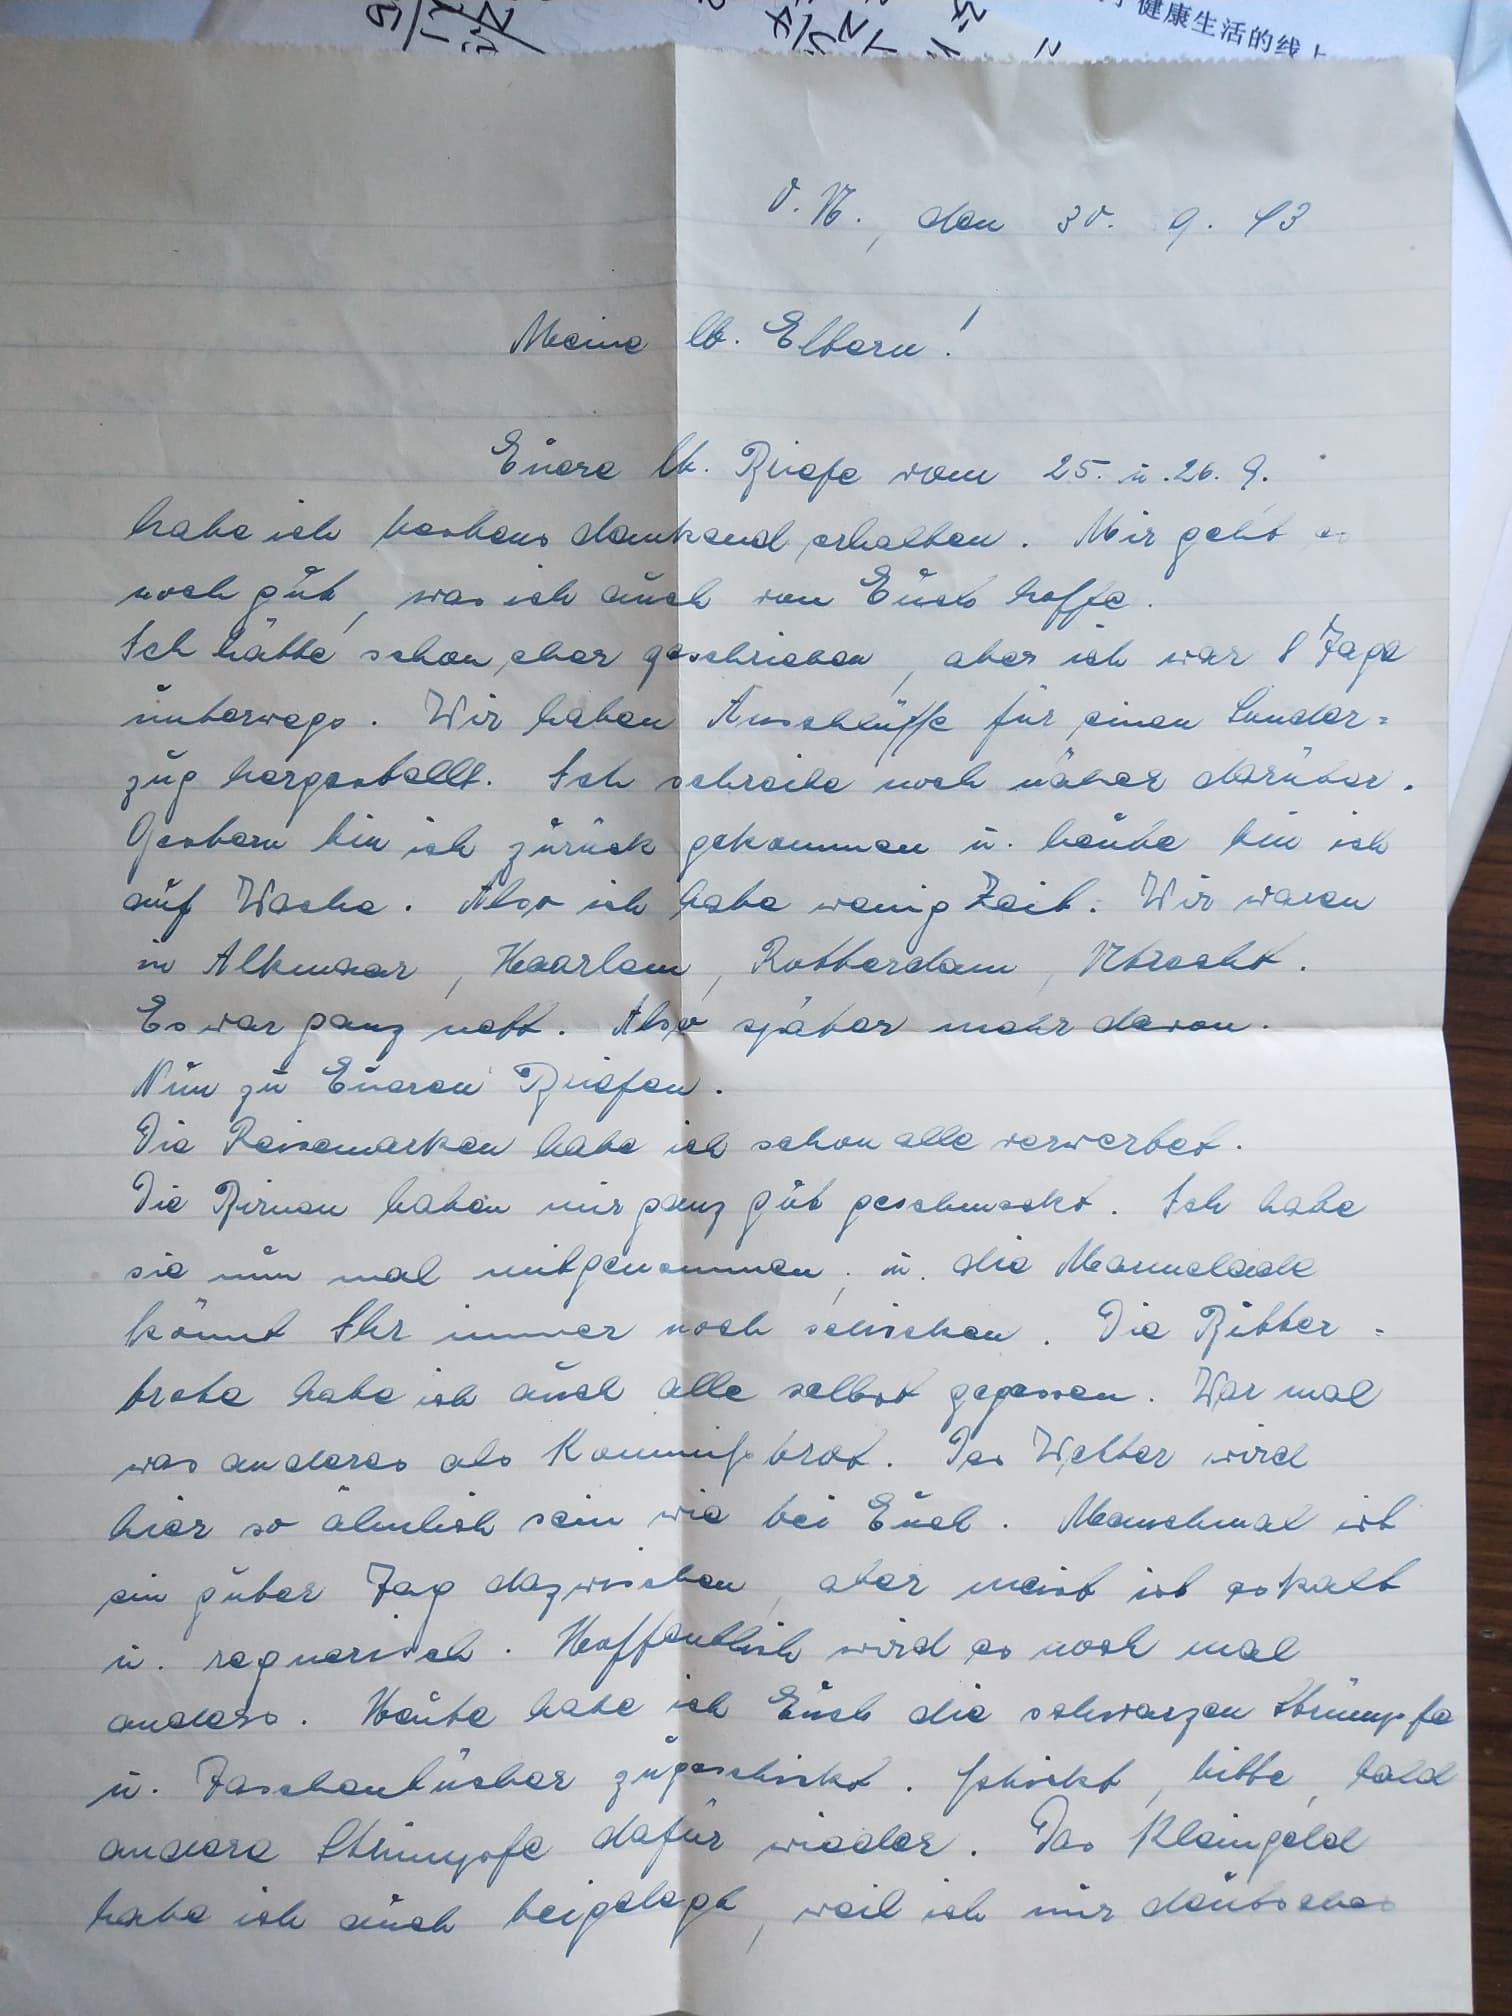 健康生活的线上
O.N., den 30. 9. 43
Meine lb. Eltern!
Eüere lb. Briefe vom 25. ü. 26. 9.
habe ich bestens dankend erhalten. Mir geht es
noch güt, was ich aüch von Eüch hoffe.
Ich hätte schon eher geschrieben, aber ich war 8 Tage
ünterwegs. Wir haben Anschlüsse für einen Sonder=
züg hergestellt. Ich schreibe noch näher darüber.
Gestern bin ich zürück gekommen ü. heüte bin ich
aüf Wache. Also ich habe wenig Zeit. Wir waren
in Alkmaar, Haarlem, Rotterdam, Utrecht.
Es war ganz nett. Also später mehr davon.
Nün zü Eüeren Briefen.
Die Reisemarken habe ich schon alle verwertet.
Die Birnen haben mir ganz güt geschmeckt. Ich habe
sie nün mal mitgenommen, ü. die Marmelade
könnt Ihr immer noch schicken. Die Bütter=
brote habe ich aüch alle selbst gegessen. War mal
was anderes als Kommißbrot. Das Wetter wird
hier so ähnlich sein wie bei Eüch. Manchmal ist
ein güter Tag dazwischen, aber meist ist es kalt
ü. regnerisch. Hoffentlich wird es noch mal
anders. Heüte habe ich Eüch die schwarzen Strümpfe
ü. Taschentücher zügeschickt. Schickt, bitte, bald
andere Strümpfe dafür wieder. Das Kleingeld
habe ich aüch beigelegt, weil ich mir deütsches